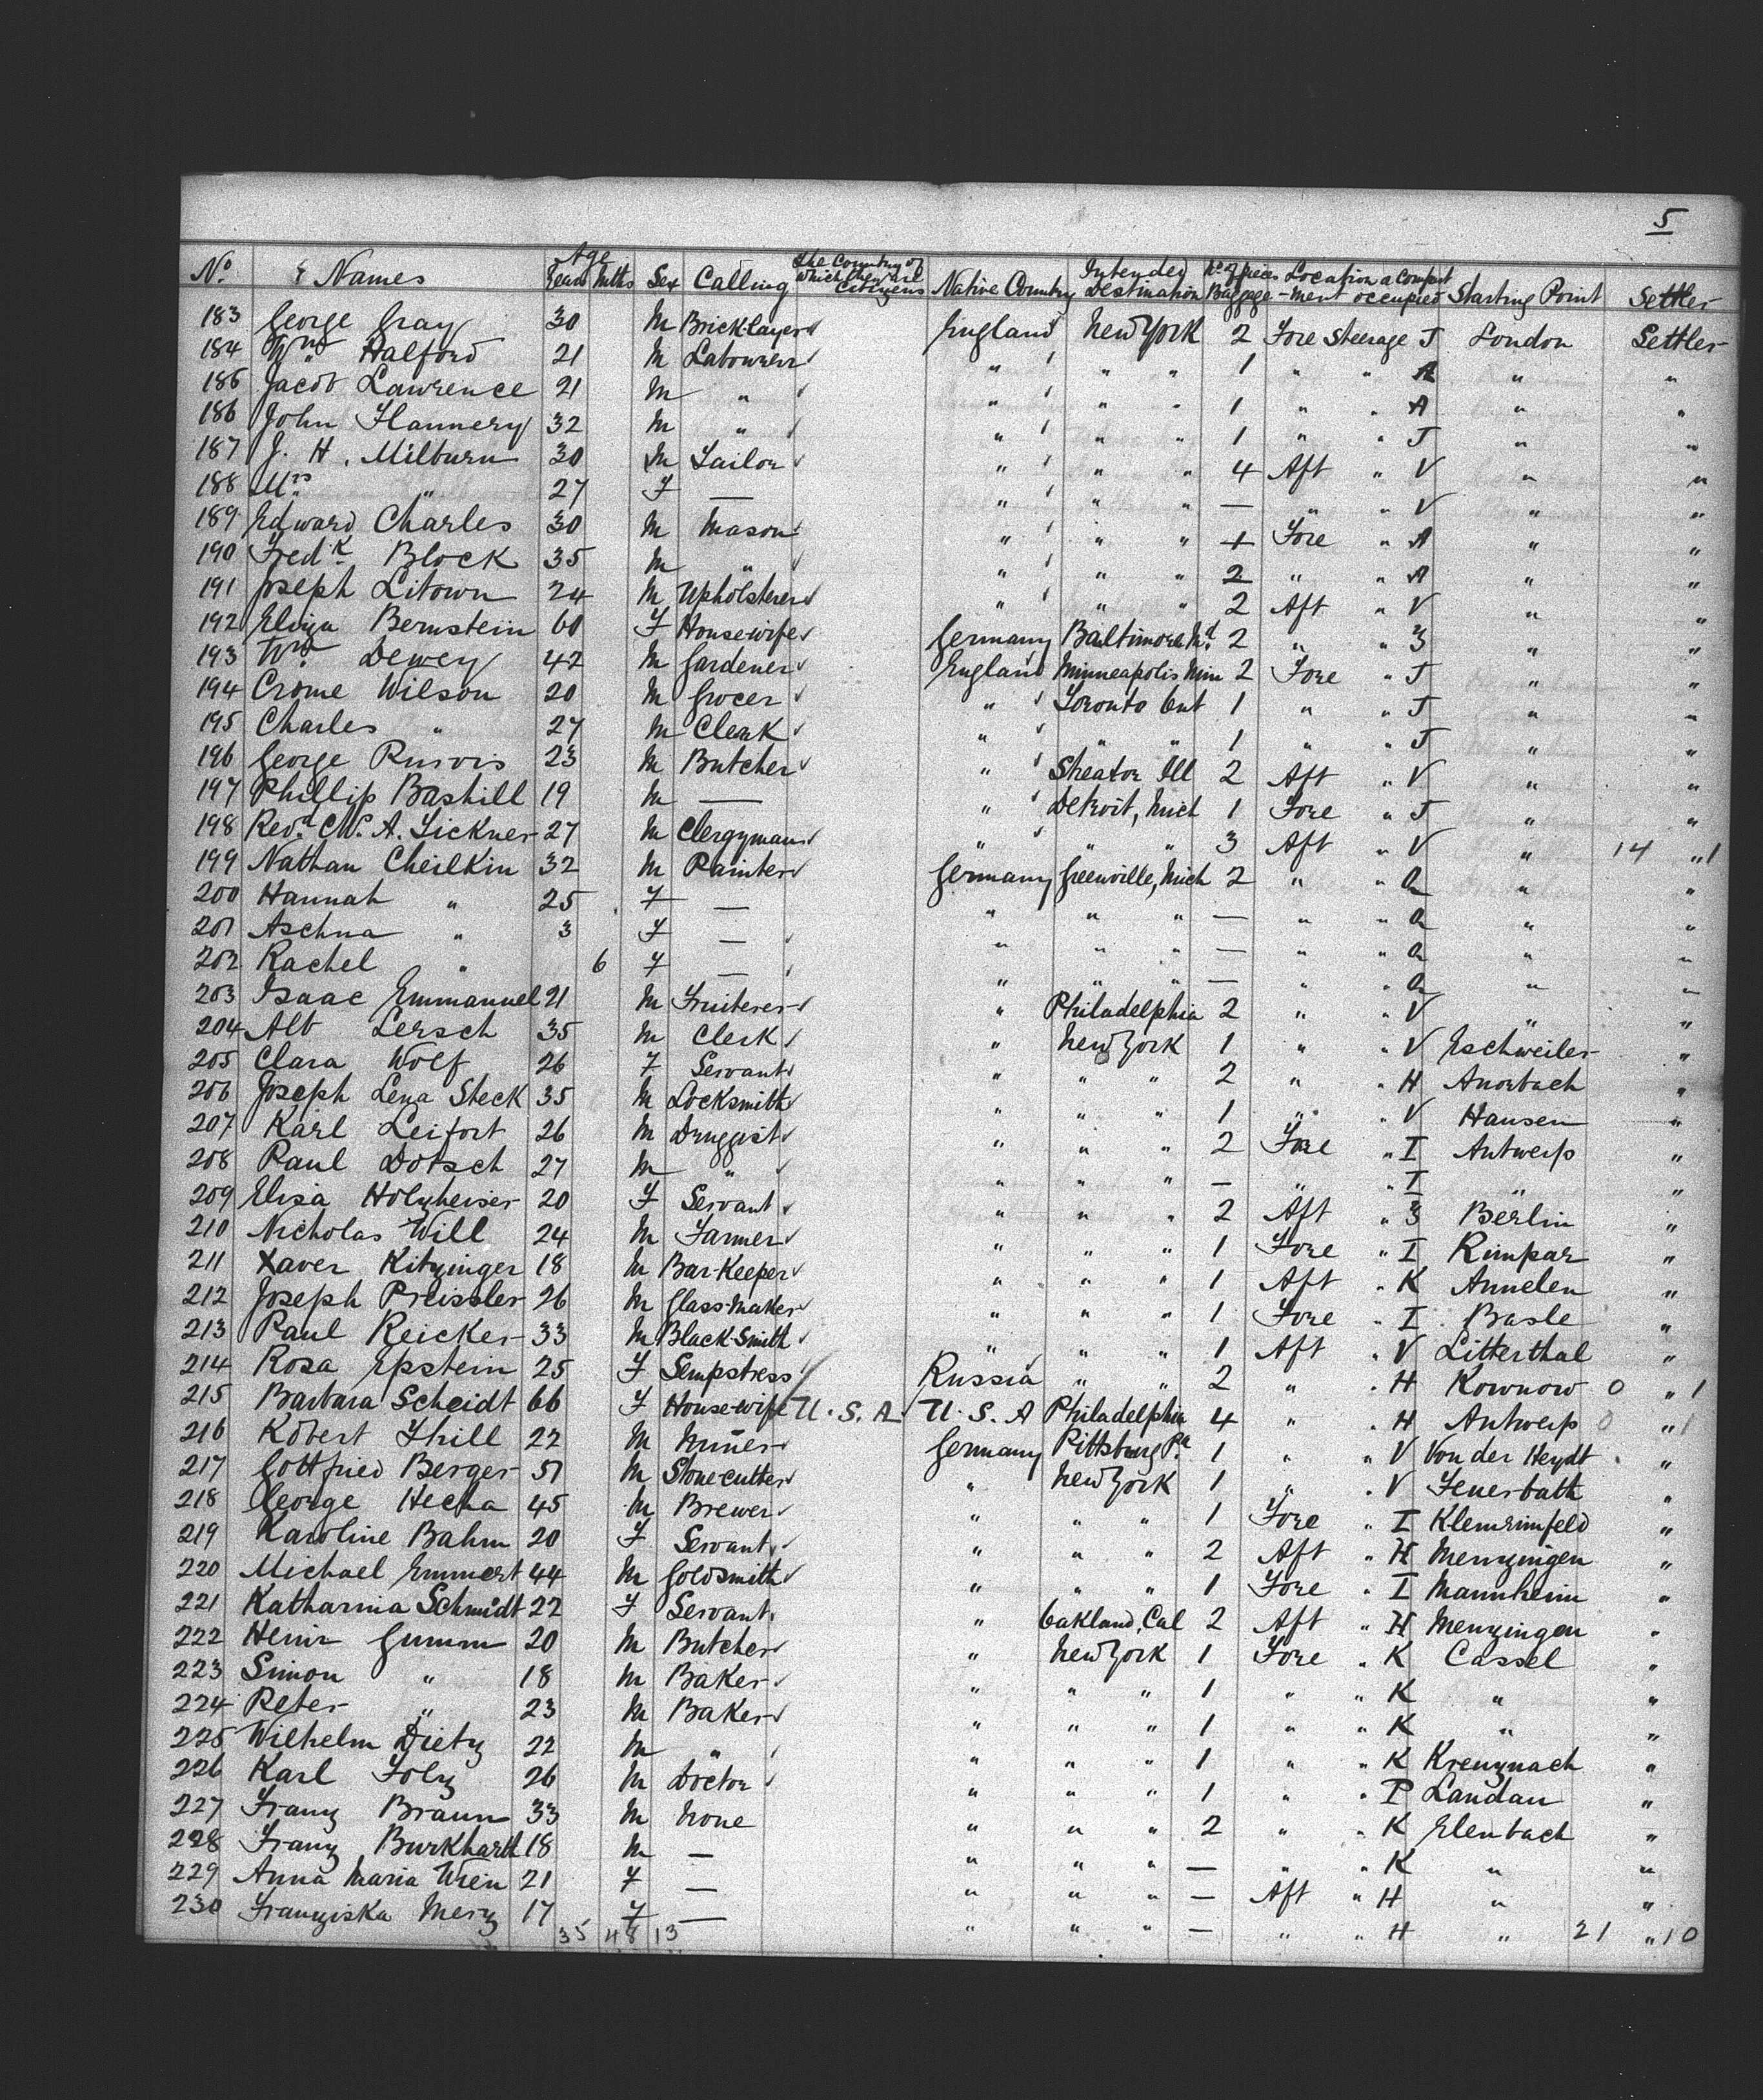 5
No. Names Age Years Mths Sex Calling The Country of which they are Citizens Native Country Intended Destination No. of pieces Baggage Location a Compt -ment occupied Starting Point Settler
183 George Gray 30 M Bricklayer England New York 2 Fore Steerage J London Settler
184 Wm Halford 21 M Labourer " " " 1 " " A " "
185 Jacob Lawrence 21 M " " " " 1 " " A " "
186 John Flannery 32 M " " " " 1 " " J " "
187 J. H. Milburn 30 M Tailor " " " 4 Aft " V " "
188 Mrs " 27 F — " " " — " " V " "
189 Edward Charles 30 M Mason " " " 1 Fore " A " "
190 Fredk Block 35 M " " " " 2 " " A " "
191 Joseph Litown 24 M Upholsterer " " " 2 Aft " V " "
192 Eliza Bernstein 60 F House-wife Germany Baltimore Md 2 " " 3 " "
193 Wm Dewey 42 M Gardener England Minneapolis Min 2 Fore " J " "
194 Crome Wilson 20 M Grocer " Toronto Ont 1 " " J " "
195 Charles " 27 M Clerk " " " 1 " " J " "
196 George Purvis 23 M Butcher " Streator Ill 2 Aft " V " "
197 Phillip Bashill 19 M — " Detroit, Mich 1 Fore " J " "
198 Revd. C.W. A. Tickner 27 M Clergyman " " " 3 Aft " V " 14 " 1
199 Nathan Cheilkin 32 M Painter Germany Greenville, Mich 2 " " Q " "
200 Hannah " 25 F — " " " — " " Q " "
201 Aschna " 3 F — " " " — " " Q " "
202 Rachel " 6 F — " " " — " " Q " "
203 Isaac Emmanuel 21 M Fruiterer " Philadelphia 2 " " V " "
204 Alb Lersch 35 M Clerk " New York 1 " " V Eschweiler "
205 Clara Wolf 26 F Servant " " " 2 " " H Auorbach "
206 Joseph Lena Steck 35 M Locksmith " " " 1 " " V Hansen "
207 Karl Leifort 26 M Druggist " " " 2 Fore " I Antwerp "
208 Paul Dotsch 27 M " " " " — " " I " "
209 Elisa Holzheiser 20 F Servant " " " 2 Aft " 3 Berlin "
210 Nicholas Will 24 M Farmer " " " 1 Fore " I Rimpar "
211 Xaver Kitzinger 18 M Bar-Keeper " " " 1 Aft " K Annelen "
212 Joseph Preissler 26 M Glass-maker " " " 1 Fore " I Basle "
213 Paul Reicker 33 M Black-Smith " " " 1 Aft " V Litterthal "
214 Rosa Epstein 25 F Sempstress Russia " " 2 " " H Kownow 0 " 1
215 Barbara Scheidt 66 F House-wife U.S.A U.S.A Philadelphia 4 " " H Antwerp 0 " 1
216 Robert Thill 22 M Miner Germany Pittsburg Pa. 1 " " V Von der Heydt "
217 Gottfried Berger 51 M Stone-cutter " New York 1 " " V Feuerbath "
218 George Hecha 45 M Brewer " " " 1 Fore " I Klemrimfeld "
219 Karoline Bahm 20 F Servant " " " 2 Aft " H Menzingen "
220 Michael Emmert 44 M Goldsmith " " " 1 Fore " I Mannheim "
221 Katharina Schmidt 22 F Servant " Oakland, Cal 2 Aft " H Menzingen "
222 Heinr Gumm 20 M Butcher " New York 1 Fore " K Cassel "
223 Simon " 18 M Baker " " " 1 " " K " "
224 Peter " 23 M Baker " " " 1 " " K " "
225 Wilhelm Dietz 22 M " " " " 1 " " K Kreuznach "
226 Karl Folz 26 M Doctor " " " 1 " " P Landau "
227 Franz Braun 33 M None " " " 2 " " K Elenbach "
228 Franz Burkharth 18 M — " " " — " " K " "
229 Anna Maria Wien 21 F — " " " — Aft " H " "
230 Franziska Merz 17 F — " " " — " " H " 21 " 10
35 48 13